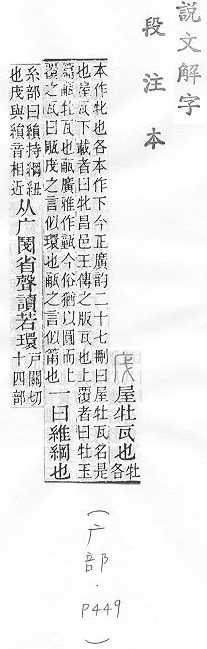 說文解字
段注本
屋牡瓦也牡
各
本作牝也各本作下今正廣韵二十七刪曰屋牡瓦名是
也屋瓦下載者曰牝昌邑王傳之版瓦也上覆者曰牡玉
牡瓦也 廣雅作 今俗猶以圓而上
覆之瓦曰 之言似環也 之言似筩也
一曰維綱也
糸部曰縜持綱紐
也 與縜音相近
从广閔省聲讀若環
戶關切
十四部
(广部·P449)